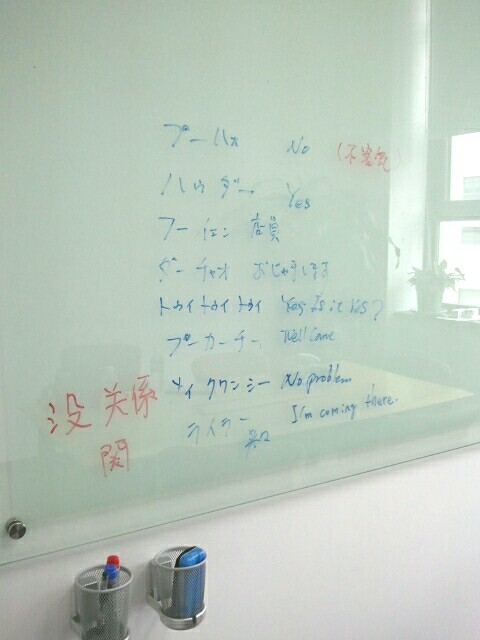 プーハオ No (不客气)
ハウダー Yes
フーイェン 店員
ダーチャオ おじゃまします
トゥイトゥイトゥイ Yes Is it Yes?
ブーカーチー Well Came
メイクワンシー No problem
没関係
関
ライラー I'm coming there.